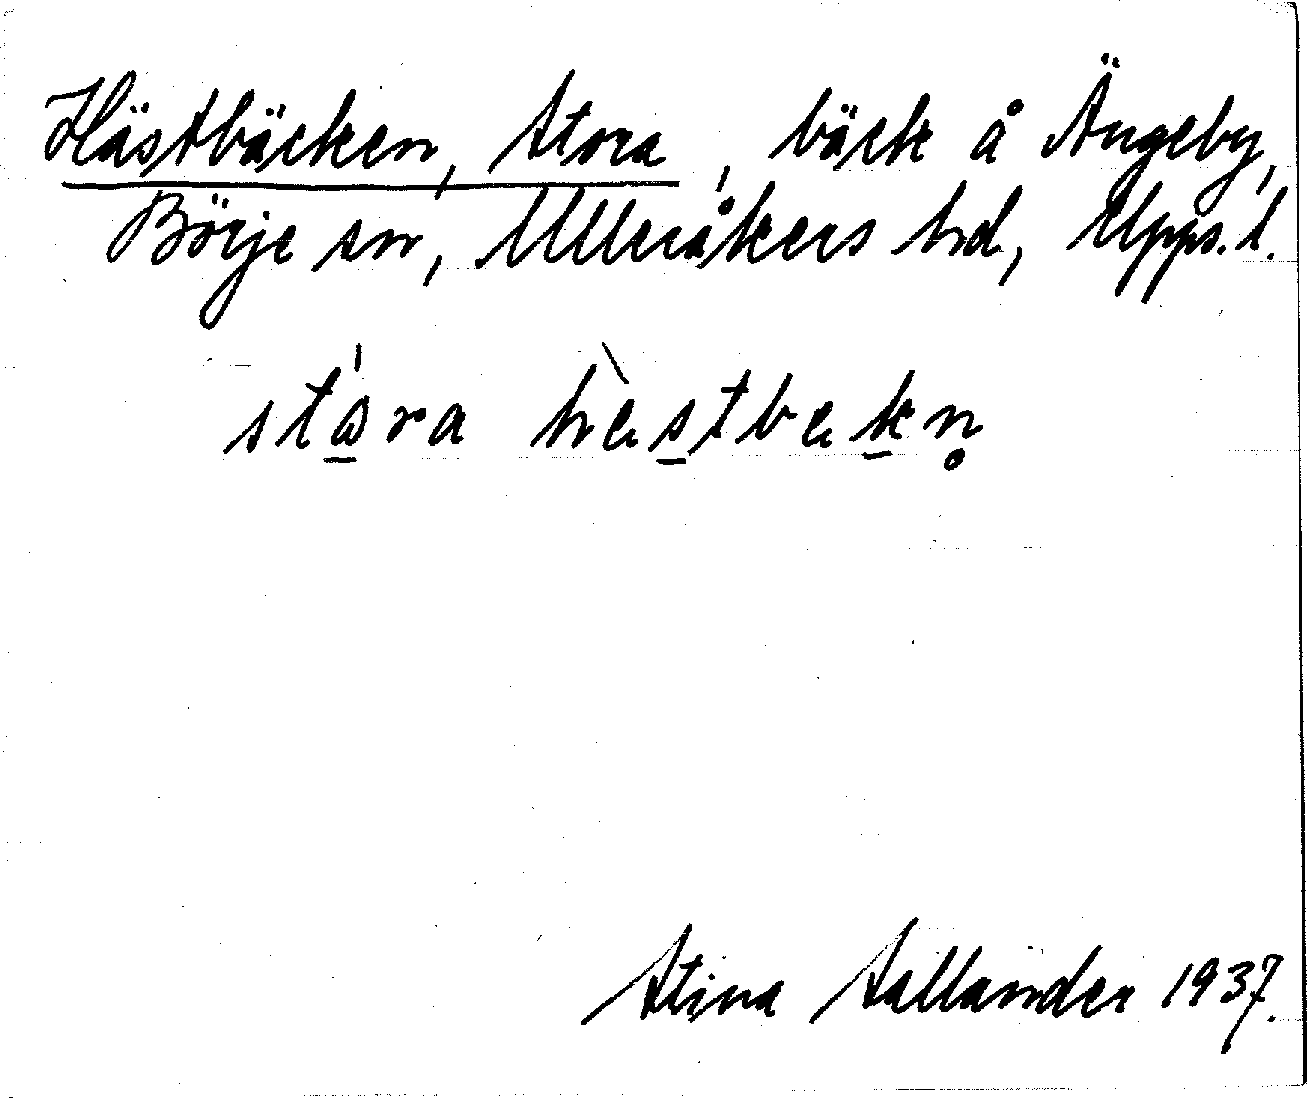 Hästbäcken, Stora, bäck å Ängeby,
Börje sn, Ulleråkers hd, Upps. l.
stɷ́ra hæ̀stbækn̥
Stina Sallander 1937.